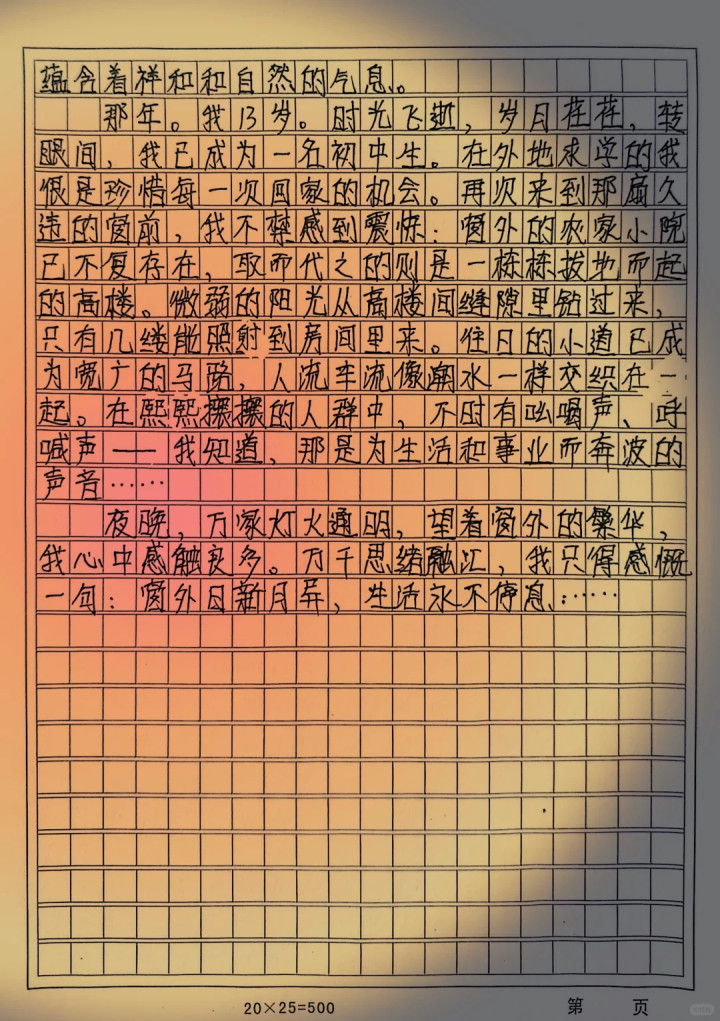 蕴含着祥和和自然的气息。
那年。我13岁。时光飞逝，岁月荏荏，转
眼间，我已成为一名初中生。在外地求学的我
很是珍惜每一次回家的机会。再次来到那扇久
违的窗前，我不禁感到震惊：窗外的农家小院
已不复存在，取而代之的则是一栋栋拔地而起
的高楼。微弱的阳光从高楼间缝隙里钻过来，
只有几缕能照射到房间里来。往日的小道已成
为宽广的马路，人流车流像潮水一样交织在一
起。在熙熙攘攘的人群中，不时有吆喝声、呼
喊声——我知道，那是为生活和事业而奔波的
声音……
夜晚，万家灯火通明，望着窗外的繁华，
我心中感触更多。万千思绪融汇，我只得感慨
一句：窗外日新月异，生活永不停息……
20×25=500
第 页